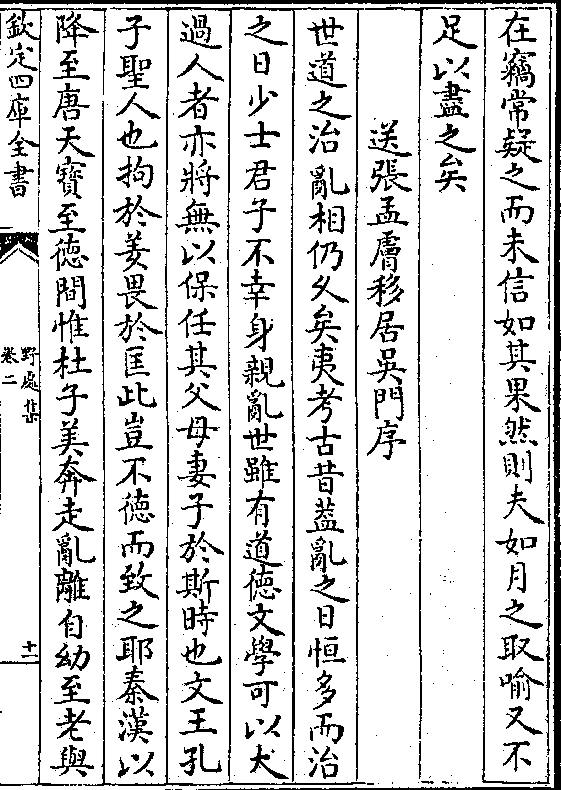 在竊常疑之而未信如其果然則夫如月之取喻又不
足以盡之矣
送張孟膚移居吳門序
世道之治亂相仍久矣夷考古昔葢亂之日恒多而治
之日少士君子不幸身親亂世雖有道德文學可以大
過人者亦將無以保任其父母妻子於斯時也文王孔
子聖人也拘於羑畏於匡此豈不德而致之耶秦漢以
降至唐天寶至德間惟杜子美奔走亂離自幼至老與
欽定四庫全書
野處集
卷二
十一